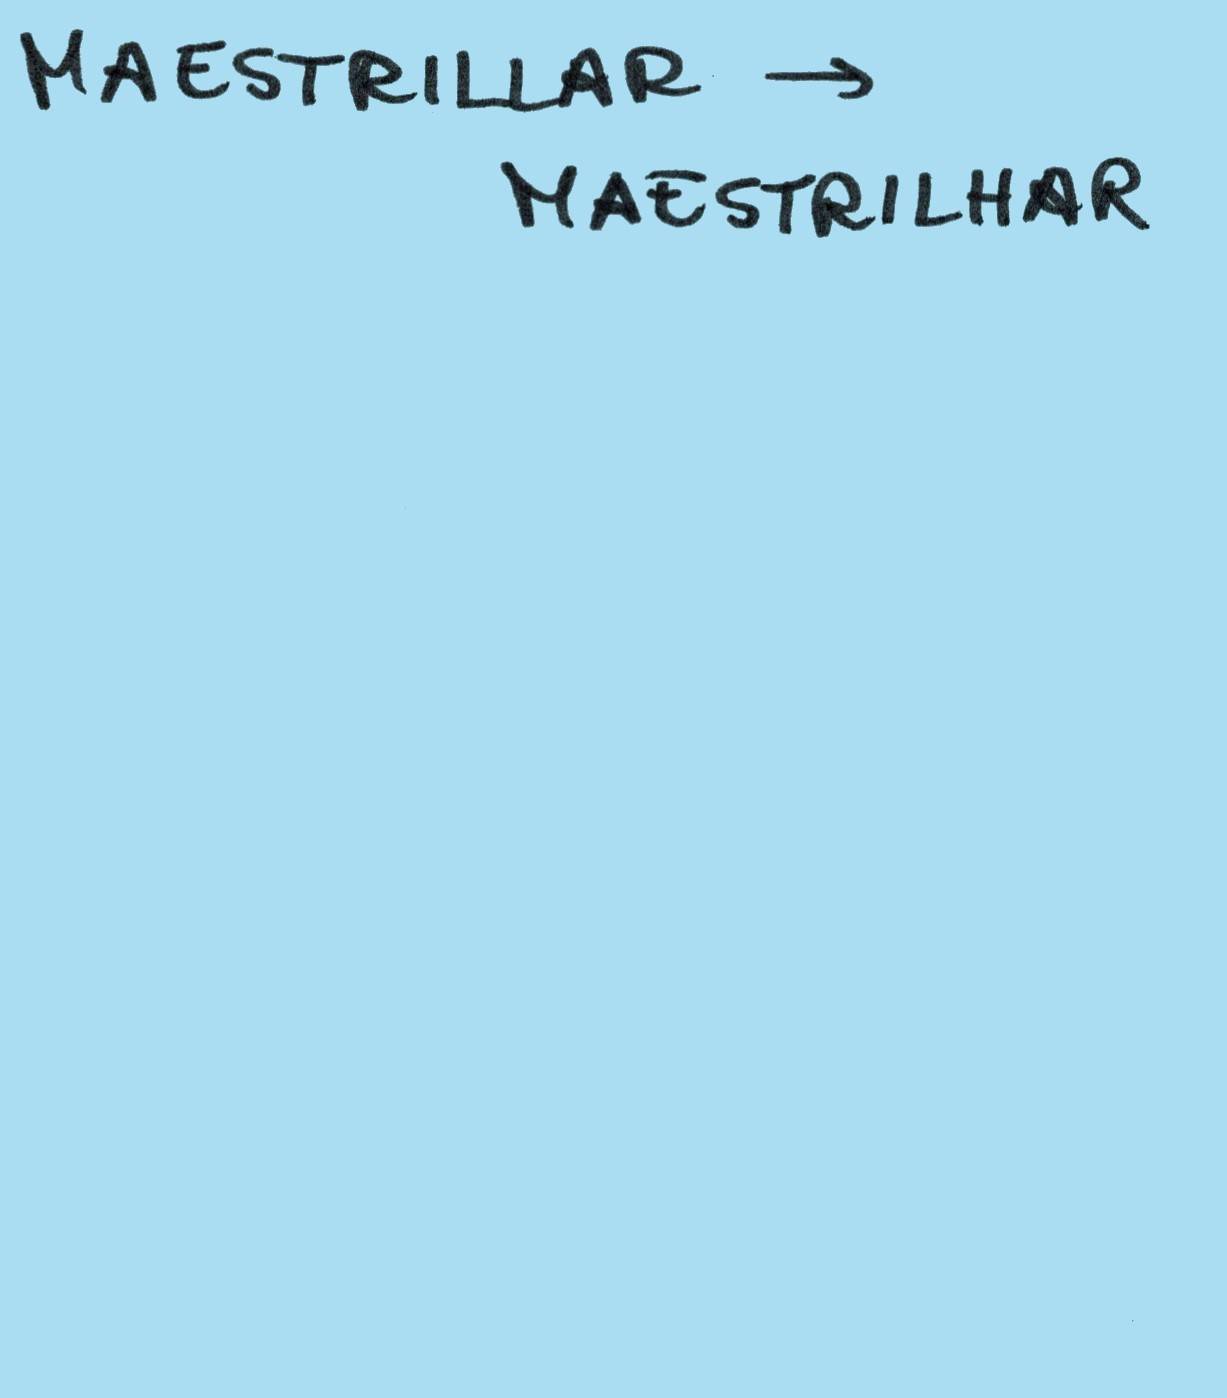 MAESTRILLAR →
MAESTRILHAR